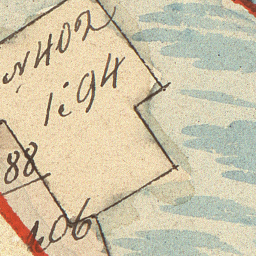 N 402
1:94
88
206